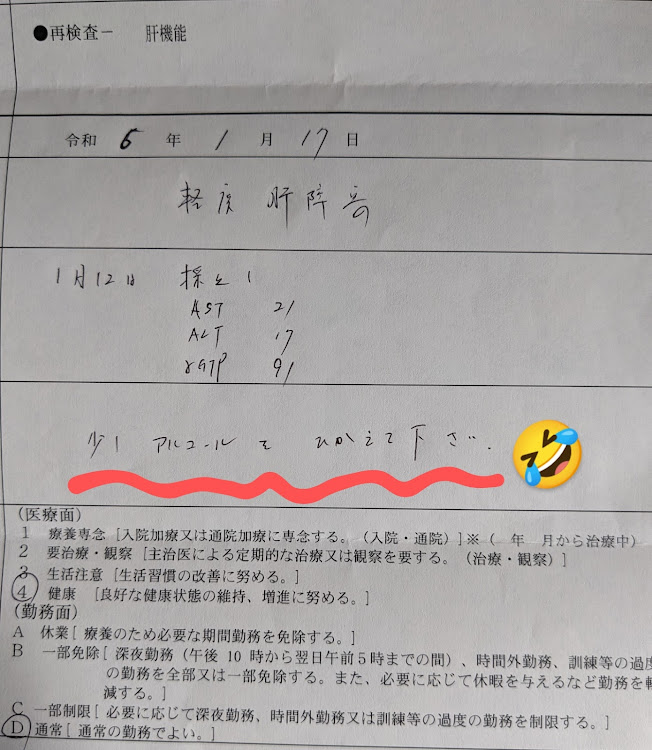 ●再検査－ 肝機能
令和 5 年 1 月 17 日
軽度 肝障害
1月12日 採血し
AST 21
ALT 17
γGTP 91
少し アルコールを ひかえて下さい.
(医療面)
1 療養専念 [入院加療又は通院加療に専念する。(入院・通院)]※( 年 月から治療中)
2 要治療・観察 [主治医による定期的な治療又は観察を要する。(治療・観察)]
3 生活注意 [生活習慣の改善に努める。]
4 健康 [良好な健康状態の維持、増進に努める。]
(勤務面)
A 休業[ 療養のため必要な期間勤務を免除する。]
B 一部免除[ 深夜勤務(午後 10 時から翌日午前5時までの間)、時間外勤務、訓練等の過度
の勤務を全部又は一部免除する。また、必要に応じて休暇を与えるなど勤務を軽
減する。]
C 一部制限[ 必要に応じて深夜勤務、時間外勤務又は訓練等の過度の勤務を制限する。]
D 通常[ 通常の勤務でよい。]